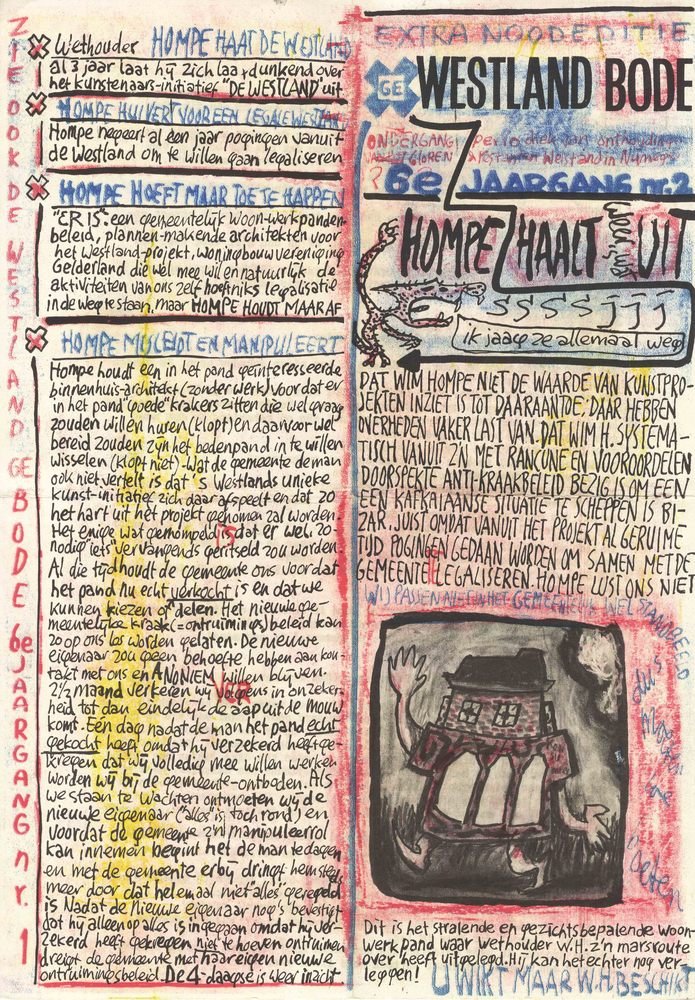 ZIE OOK DE WESTLAND GE BODE 6e JAARGANG nr. 1
Wethouder HOMPE HAAT DE WESTLAND
al 3 jaar laat hij zich laatdunkend over
het kunstenaars-initiatief "DE WESTLAND" uit
HOMPE HUIVERT VOOR EEN LEGALE WESTLAND
Hompe negeert al een jaar pogingen vanuit
de Westland om te willen gaan legaliseren
HOMPE HOEFT MAAR TOE TE HAPPEN
"ER IS" een gemeentelijk woon-werkpanden-
beleid, plannen-makende architekten voor
het Westland-projekt, woningbouwvereniging
Gelderland die wel mee wil en natuurlijk de
aktiviteiten van ons zelf hoeft niks legalisatie
in de weg te staan, maar HOMPE HOUDT MAAR AF
HOMPE MISLEIDT EN MANIPULEERT
Hompe houdt een in het pand geïnteresseerde
binnenhuis-architekt (zonder werk) voor dat er
in het pand "goede" krakers zitten die wel graag
zouden willen huren (klopt) en daarvoor wel
bereid zouden zijn het bedenpand in te willen
wisselen (klopt niet). Wat de gemeente de man
ook niet vertelt is dat 's Westlands unieke
kunst-initiatief zich daar afspeelt en dat zo
het hart uit het projekt genomen zal worden.
Het enige wat gemompeld is dat er wel zo-
nodig iets vervangends geritseld zou worden.
Al die tijd houdt de gemeente ons voor dat
het pand nu echt verkocht is en dat we
kunnen kiezen of delen. Het nieuwe ge-
meentelijke kraak (=ontruimings) beleid kan
zo op ons los worden gelaten. De nieuwe
eigenaar zou geen behoefte hebben aan kon-
takt met ons en ANONIEM willen blijven.
2½ maand verkeren wij volgens in onzeker-
heid tot dan eindelijk de aap uit de mouw
komt. Eén dag nadat de man het pand echt
gekocht heeft omdat hij verzekerd heeft ge-
kregen dat wij volledig mee willen werken
worden wij bij de gemeente ontboden. Als
we staan te wachten ontmoeten wij de
nieuwe eigenaar ("alles" is toch rond) en
voordat de gemeente z'n manipuleerrol
kan innemen begint het de man te dagen
en met de gemeente erbij dringt hem steds
meer door dat helemaal niet alles geregeld
is Nadat de nieuwe eigenaar nog 's bevestigt
dat hij alleen op alles is ingegaan omdat hij ver-
zekerd heeft gekregen niet te hoeven ontruimen
dreigt de gemeente met haar eigen nieuwe
ontruimingsbeleid. De 4-daagse is weer in zicht
EXTRA NOODEDITIE
GE WESTLAND BODE
ONDERGANG periodiek van onthouding
GLOREN Welstand in Nijmegen
6e JAARGANG nr. 2
HOMPE HAALT WOEI LUST UIT
SSSSJJJ
ik jaag ze allemaal weg
DAT WIM HOMPE NIET DE WAARDE VAN KUNSTPRO-
JEKTEN INZIET IS TOT DAAR AAN TOE. DAAR HEBBEN
OVERHEDEN VAKER LAST VAN. DAT WIM H. SYSTEMA-
TISCH VANUIT Z'N MET RANCUNE EN VOOROORDELEN
DOORSPEKTE ANTI-KRAAKBELEID BEZIG IS OM EEN
EEN KAFKAIAANSE SITUATIE TE SCHEPPEN IS BI-
ZAR. JUIST OMDAT VANUIT HET PROJEKT AL GERUIME
TIJD POGINGEN GEDAAN WORDEN OM SAMEN MET DE
GEMEENTE LEGALISEREN. HOMPE LUST ONS NIET
WIJ PASSEN NIET IN HET GEMEENTELIJK WELSTANDBEELD
's dus mogen we
Dit is het stralende en gezichtsbepalende woon-
werk pand waar wethouder W.H. z'n marsroute
over heeft uitgelegd. Hij kan het echter nog ver-
leggen! U WIKT MAAR W.H. BESCHIKT